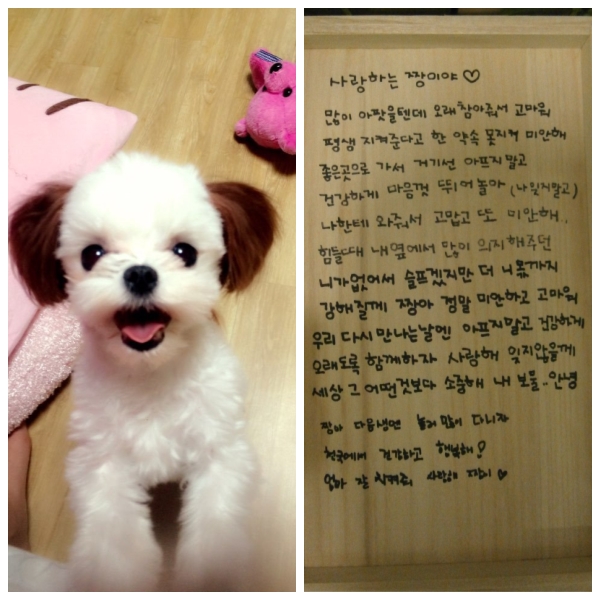 사랑하는 짱이야♡
많이 아팟을텐데 오래 참아줘서 고마워
평생 지켜준다고 한 약속 못지켜 미안해
좋은곳으로 가서 거기선 아프지말고
건강하게 마음껏 뛰어놀아 (나잊지말고)
나한테 와줘서 고맙고 또 미안해..
힘들때 내옆에서 많이 의지해주던
니가없어서 슬프겠지만 더 니몫까지
강해질게 짱아 정말 미안하고 고마워
우리 다시만나는날엔 아프지말고 건강하게
오래도록 함께하자 사랑해 잊지않을게
세상 그 어떤것보다 소중해 내 보물..안녕
짱아 다음생엔 놀러 많이 다니자
천국에서 건강하고 행복해!
엄마 잘 지켜줘 사랑해 짱이♡